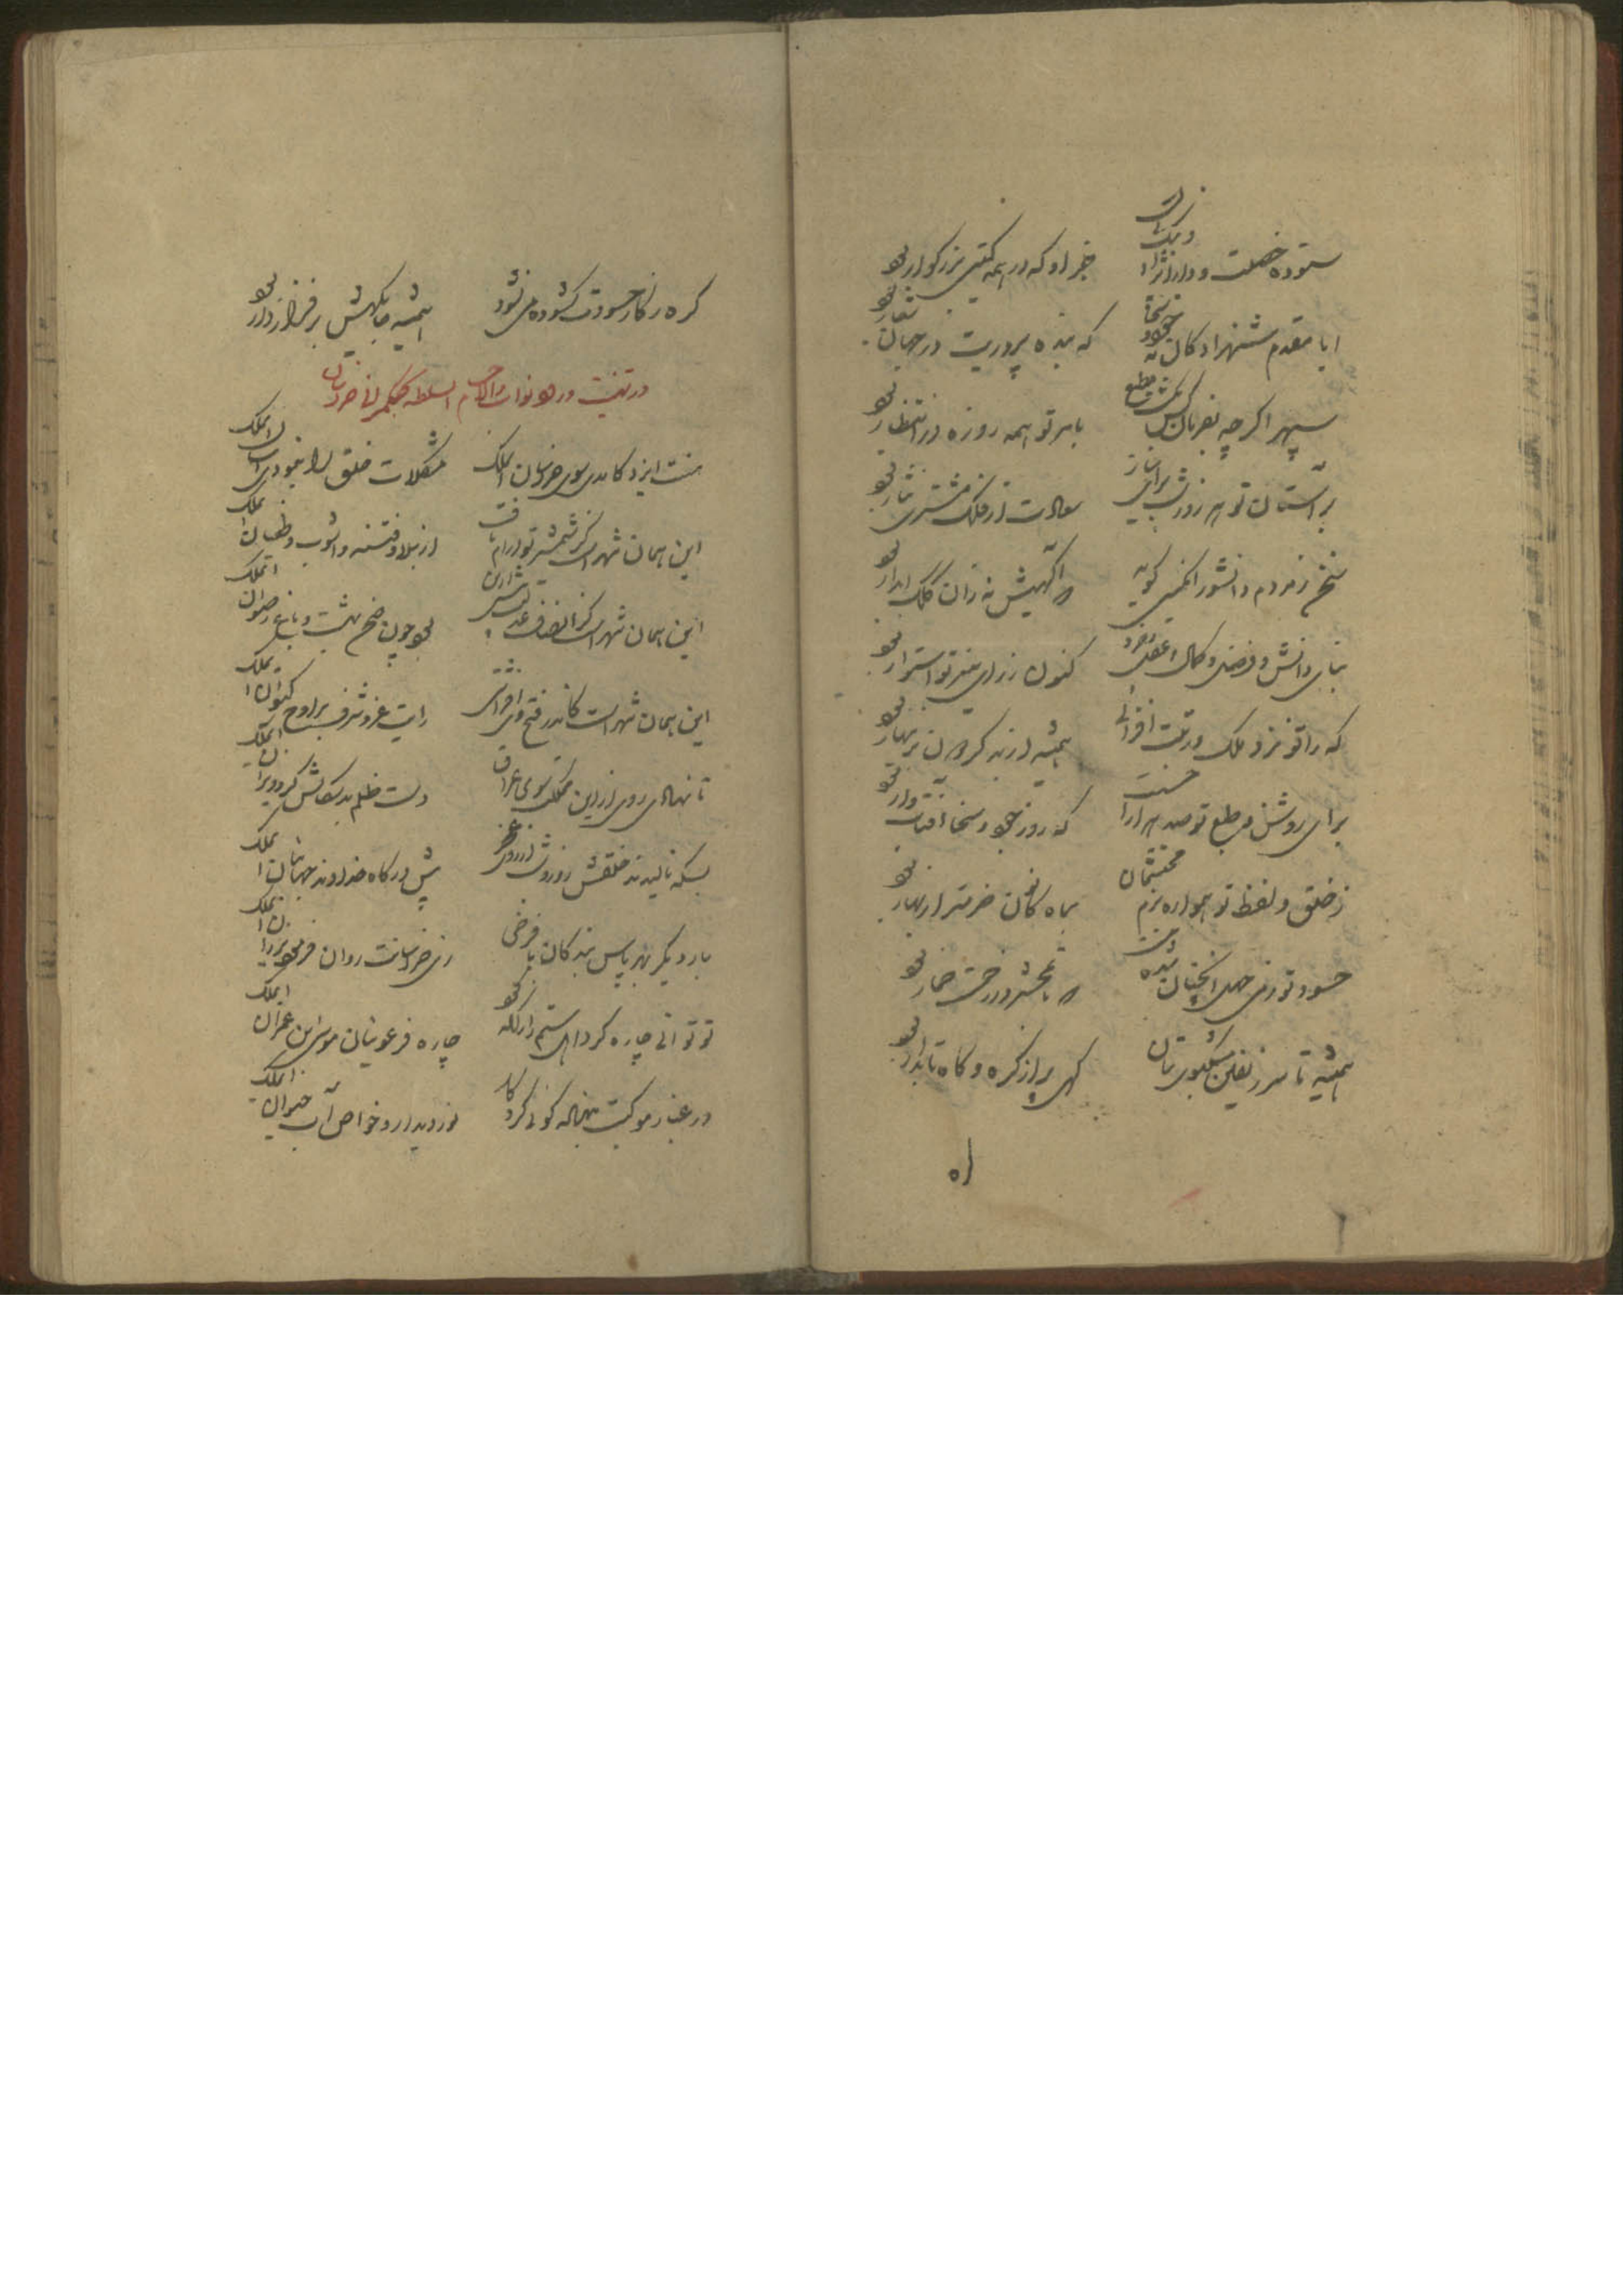 ستوده خصلت و دارا نژاد و نیک نهاد
جز او که در همه گیتی بزرگوار بود
ایا مقدم شهزادگان به جود و سخا
که بنده پروریت در جهان شعار بود
سپهر اگر چه بفرمان کس
بامر تو همه روزه در انتظار بود
بر آستان تو هر روز و شب برای نیاز
سعادت از فلک مشتری نثار بود
سخن ز مردم دانشور
بنای دانش و فضل و کمال و عقل و خرد
کنون ز رای منیر تو استوار بود
که را تو نزد ملک
همیشه از بد گردون بزینهار بود
برای روشن و طبع تو صد هزار
که روز جود و سخا آفتاب وار بود
ز خلق و لفظ تو همواره بزم محتشمان
بماه کانون خرمتر از بهار بود
حسود تو ز می جهل آنچنان شده مست
که تا بحشر در زحمت خمار بود
همیشه تا سر زلفین مشکبوی بتان
گهی پر از گره و گاه تابدار بود
اه
گره ز کار حسودت گشوده می نشود
همیشه جایگهش بر فراز دار بود
در تهنیت ورود نواب والا حسام السلطنه بحکمرانی خراسان
منت ایزد کامدی سوی خراسان ای ملک
مشکلات خلق را بنمودی آسان ای ملک
این همان شهر است کز شمشیر تو آرام یافت
از بلا و فتنه و آشوب و طغیان ای ملک
این همان شهر است کز انصاف و عدلت پیش ازین
بود چون صحن بهشت و باغ رضوان ای ملک
این همان شهر است کاندر فتح وی افراشتی
رایت عز و شرف بر اوج کیوان ای ملک
تا نهادی روی ازین مملکت سوی عراق
دست ظلم بدسگالش کرد ویران ای ملک
بسکه نالیدند خلقش روز و شب از روی عجز
پیش درگاه خداوند جهانبان ای ملک
بار دیگر بهر پاس بندگان با فر خی
زی خراسانت روان فرمود یزدان ای ملک
تو توانی چاره کرد اهل ستم را ز آنکه بود
چاره فرعونیان موسی بن عمران ای ملک
در غبار موکبت بینا
نور دیدار و خواص آب حیوان ای ملک